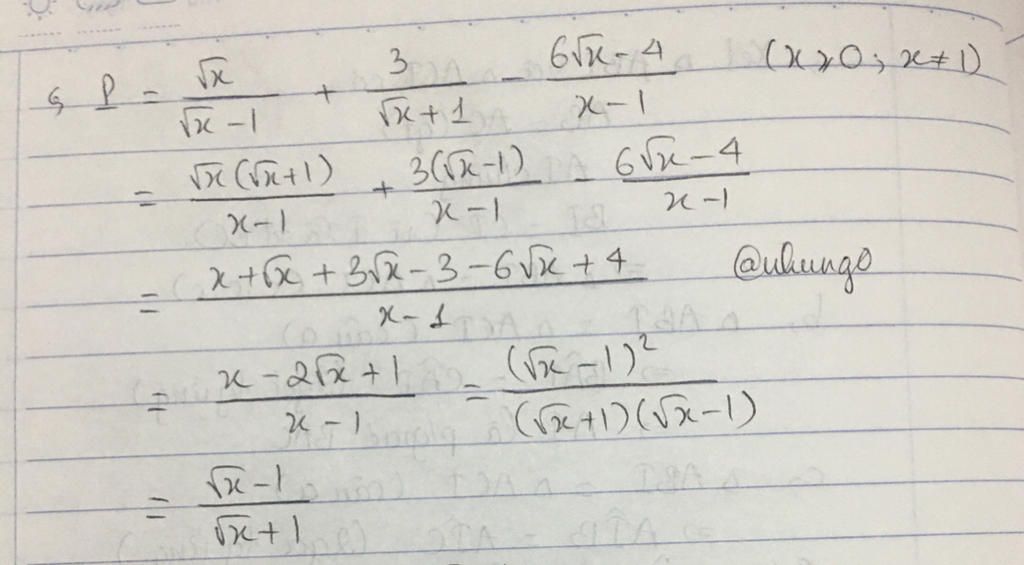 P = √x/(√x-1) + 3/(√x+1) - (6√x-4)/(x-1) (x ≥ 0; x ≠ 1)
= √x(√x+1)/(x-1) + 3(√x-1)/(x-1) - (6√x-4)/(x-1)
= (x+√x+3√x-3-6√x+4)/(x-1) @nhungo
= (x-2√x+1)/(x-1) = (√x-1)²/((√x+1)(√x-1))
= (√x-1)/(√x+1)